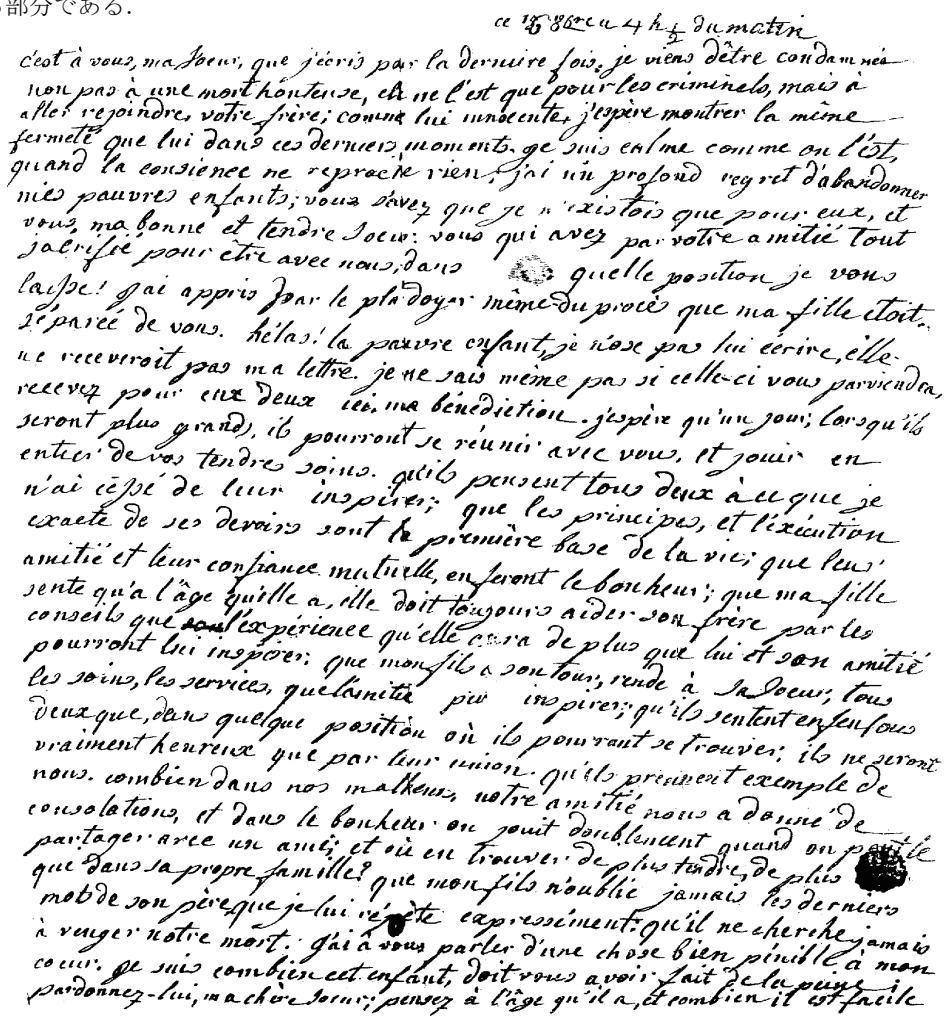 部分である.
ce 16 8bre a 4 h ½ du matin
c'est à vous, ma soeur, que j'écris pour la derniere fois, je viens d'être condamnée
non pas à une mort honteuse, elle ne l'est que pour les criminels, mais à
aller rejoindre votre frère; comme lui innocente, j'espère montrer la même
fermeté que lui dans ces derniers moments. je suis calme comme on l'est,
quand la consience ne reproche rien, j'ai un profond regret d'abandonner
mes pauvres enfants; vous savez que je n'existois que pour eux, et
vous, ma bonne et tendre soeur: vous qui avez par votre amitié tout
sacrifié pour être avec nous, dans quelle position je vous
laisse! j'ai appris par le pladoyer même du procès que ma fille étoit
séparée de vous. hélas! la pauvre enfant, je n'ose pas lui écrire, elle
ne receveroit pas ma lettre. je ne sais même pas si celle-ci vous parviendra,
recevez pour eux deux ici, ma bénédiction. j'espère qu'un jour, lorsqu'ils
seront plus grands, ils pourront se réunir avec vous, et jouir en
entier de vos tendres soins. qu'ils pensent tous deux à ce que je
n'ai cessé de leur inspirer; que les principes, et l'éxécution
exacte de ses devoirs sont la première base de la vie; que leur
amitié et leur confiance mutuelle, en feront le bonheur; que ma fille
sente qu'a l'âge qu'elle a, elle doit toujours aider son frère par les
conseils que l'expérience qu'elle aura de plus que lui et son amitié
pourront lui inspirer; que mon fils a son tour, rende à sa soeur, tous
les soins, les services, que l'amitié peu inspirer; qu'ils sentent enfin tous
deux que, dans quelque position où ils pourront se trouver, ils ne seront
vraiment heureux que par leur union. qu'ils prennent exemple de
nous. combien dans nos malheurs, notre amitié nous a donné de
consolations, et dans le bonheur on jouit doublement quand on peut le
partager avec un ami; et où en trouver de plus tendre, de plus
que dans sa propre famille? que mon fils n'oublie jamais les derniers
mots de son père, que je lui répète expressément: qu'il ne cherche jamais
à venger notre mort. j'ai à vous parler d'une chose bien pénible à mon
coeur. je sais combien cet enfant, doit vous avoir fait de la peine;
pardonnez-lui, ma chère soeur; pensez à l'âge qu'il a, et combien il est facile